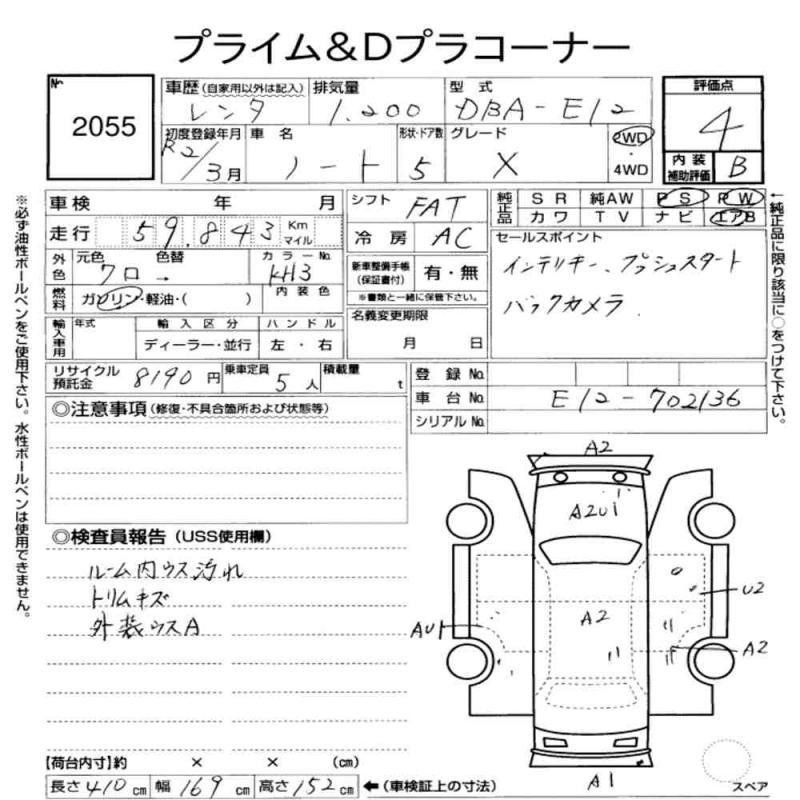 プライム&Dプラコーナー
No.
2055
車歴(自家用以外は記入)
レンタ
排気量
1.200
型式
DBA-E12
評価点
4
初度登録年月
R2/3月
車名
ノート
形状・ドア数
5
グレード
X
2WD
・
4WD
内装
補助評価
B
車検 年 月
走行 59.843 Km
マイル
シフト FAT
冷房 AC
純正品
SR 純AW PS PW
カワ TV ナビ エアB
外色
元色 色替
クロ →
カラーNo.
KH3
燃料
ガソリン・軽油・( )
内装色
新車整備手帳
(保証書付)
有・無
※書類と一緒に保管下さい。
セールスポイント
インテリキー、プッシュスタート
バックカメラ
輸入車用
年式 輸入区分 ハンドル
ディーラー・並行 左・右
名義変更期限
月 日
リサイクル
預託金
8190円
乗車定員
5人
積載量
t
登録No.
車台No. E12-702136
シリアルNo.
◎注意事項(修復・不具合箇所および状態等)
◎検査員報告(USS使用欄)
ルーム内ウス汚れ
トリムキズ
外装ウスA
A2
A2U1
U2
A2
AU1
A2
A1
スペア
【荷台内寸】約 × × (cm)
長さ410cm 幅169cm 高さ152cm ←(車検証上の寸法)
※必ず油性ボールペンをご使用下さい。水性ボールペンは使用できません。
←純正品に限り該当に○をつけて下さい。